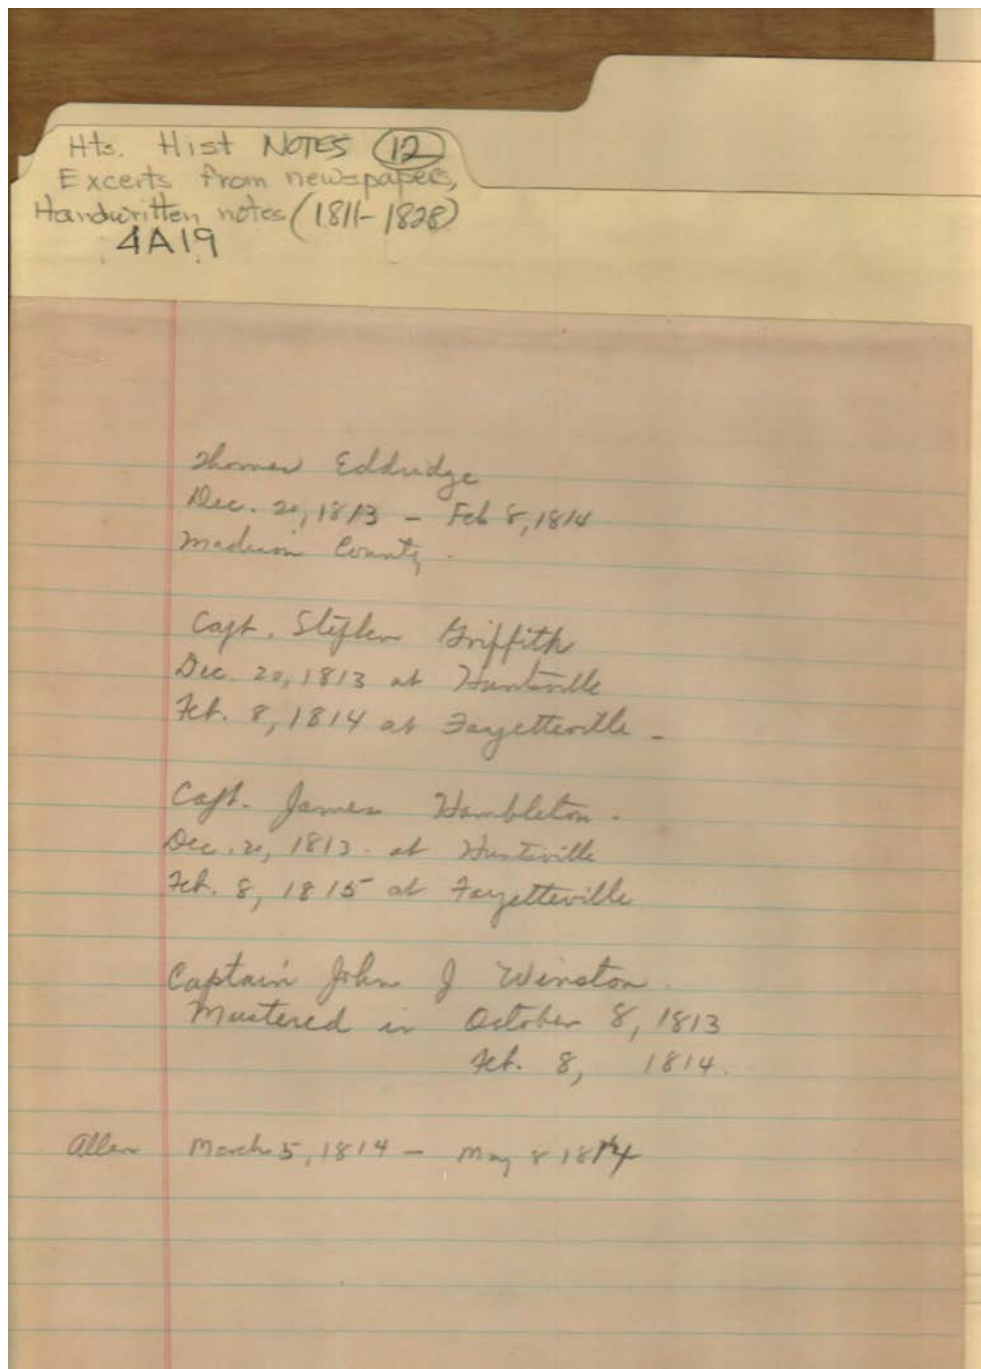 Hts. Hist NOTES 12
Excerts from newspapers,
Handwritten notes (1811-1828)
4A19
Thomas Eddridge
Dec. 20, 1813 - Feb 8, 1814
Madison County.
Capt. Stephen Griffith
Dec. 20, 1813 at Huntsville
Feb. 8, 1814 at Fayetteville -
Capt. James Hambleton.
Dec. 20, 1813. at Huntsville
Feb. 8, 1815 at Fayetteville
Captain John J Winston.
Mustered in October 8, 1813
Feb. 8, 1814.
Allen March 5, 1814 - May 8 1814